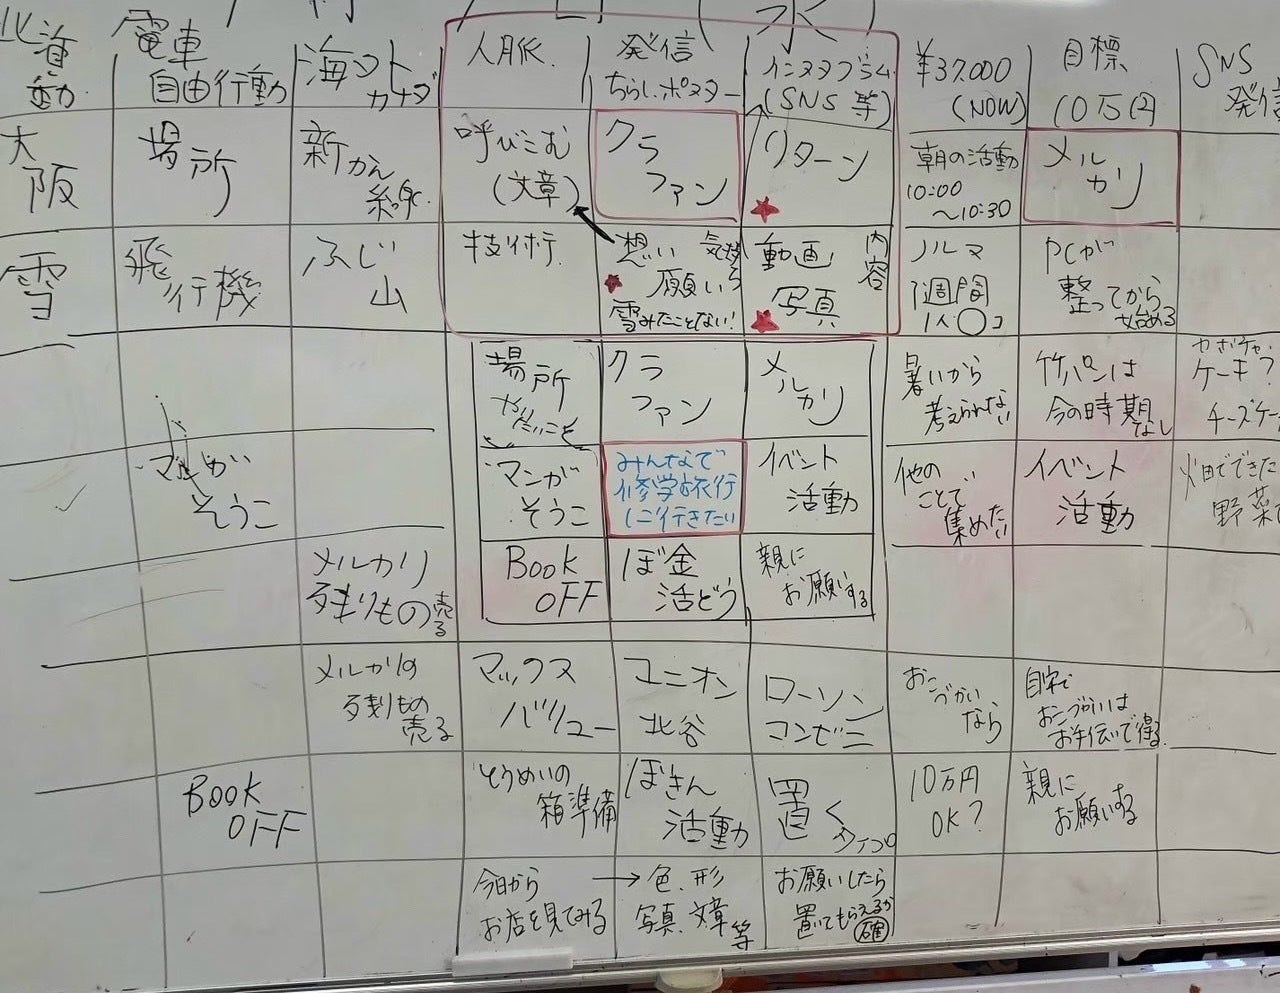 (水)
北海道
動
電車
自由行動
海外
カナダ
人脈
発信
ちらし.ポスター
インスタグラム
(SNS等)
¥37.000
(NOW)
目標
10万に
SNS
発信
大阪
場所
新かん線
呼びこむ
(文章)
クラ
ファン
リターン
朝の活動
10:00
～10:30
メル
カリ
雪
飛行機
ふじ
山
技術
想い 気持ち
願い
雪みたことない!
動画
写真
内容
ノルマ
1週間
1人〇コ
PCが
整ってから
始める
場所
クラ
ファン
メル
カリ
暑いから
考えられない
竹パンは
今の時期なし
カボチャ
ケーキ?
チーズケー
マンガ
そうこ
マンガ
そうこ
みんなで
修学旅行
に行きたい
イベント
活動
他の
ことで
集めたい
イベント
活動
畑でできた
野菜
メルカリ
残りもの売る
Book
OFF
ぼ金
活どう
親に
お願いする
メルカリの
残りもの
売る
マックス
バリュー
ユニオン
北谷
ローソン
コンビニ
おこづかい
なら
自宅で
おこづかいは
お手伝いで得る
Book
OFF
とうめいの
箱準備
ぼきん
活動
置く
10万円
OK?
親に
お願いする
今日から
お店を見てみる
→色.形
写真.文章等
お願いしたら
置いてもらえるか
確